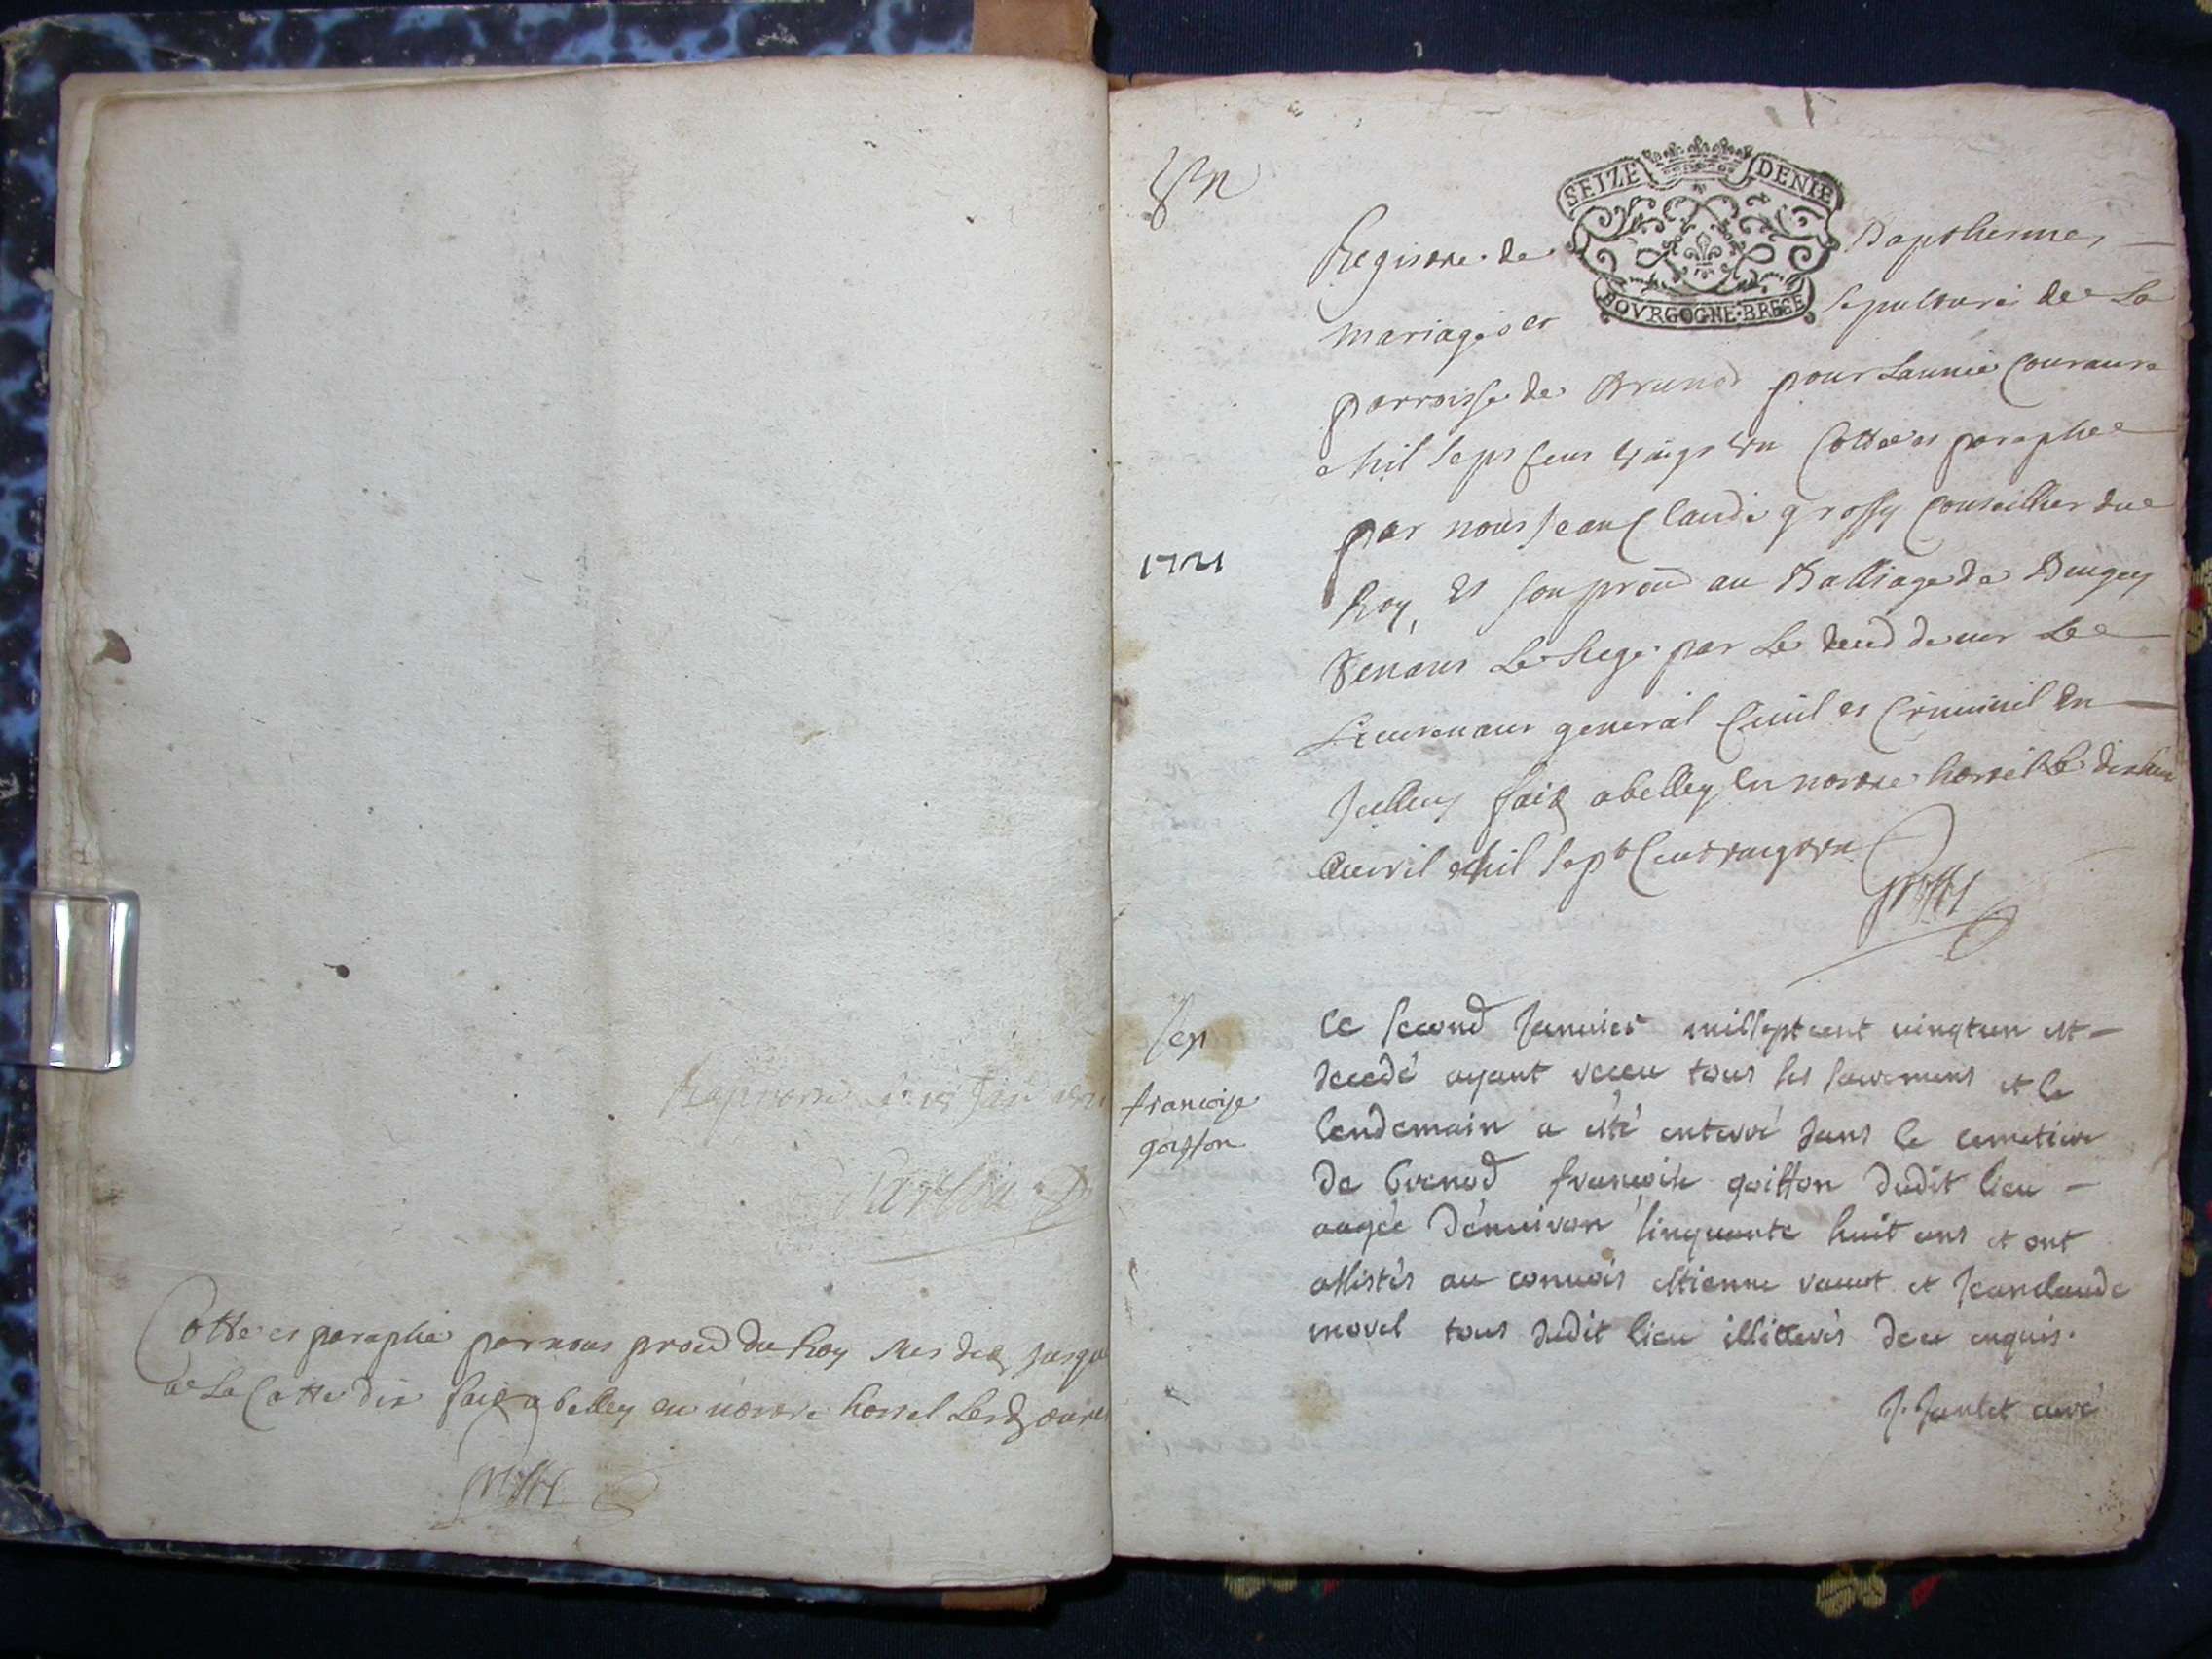 Cotté et paraphé par nous proc du Roy
a la Cotte dix fait a belley en nostre hostel
Un
SEIZE DENIE
BOVRGOGNE·BRESE
Registre de Bapthesmes
mariages et sepultures de La
parroisse de Brenod pour Lannée Courante
Mil sept Cent vingt Un Cotté et paraphé
par nous Jean Claude grossy Conseillier du
1721
Roy, Et son proc au Balliage de Beugey
Tenant Le Siege par Le
Lieutenant general Civil et Criminel En
Icelluy fait a belley En nostre hostel Le
Auvril Mil sept Cent vingt un
Sep
francoise
goiffon
le second Janvier mil sept cent vingt un est
decedé ayant receu tous les sacremens et le
lendemain a esté enterré dans le cemetiere
de brenod francoise goiffon dudit lieu
aagée d'enuiron cinquante huit ans et ont
assistés au conuois estienne et Jean claude
morel tous dudit lieu illitterés de ce enquis.
J. curé